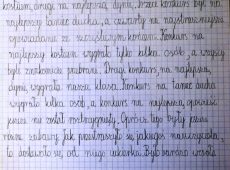 kostium, drugi na najlepszą dynię, trzeci konkurs był na
najlepszy taniec ducha, a czwarty na najstraszniejsze
opowiadanie ze szczęśliwym końcem. Konkurs na
najlepszy kostium wygrało tylko kilka osób, a wszyscy
byli znakomicie przebrani. Drugi konkurs, na najlepszą
dynię, wygrała nasza klasa. Konkurs na taniec ducha
wygrało kilka osób, a konkurs na najlepsze
nie został rozstrzygnięty. Oprócz tego były jeszcze
zabawy. Jak przestraszyło się jakiegoś nauczyciela,
to dostawało się od niego cukierka. Było bardzo wesoło